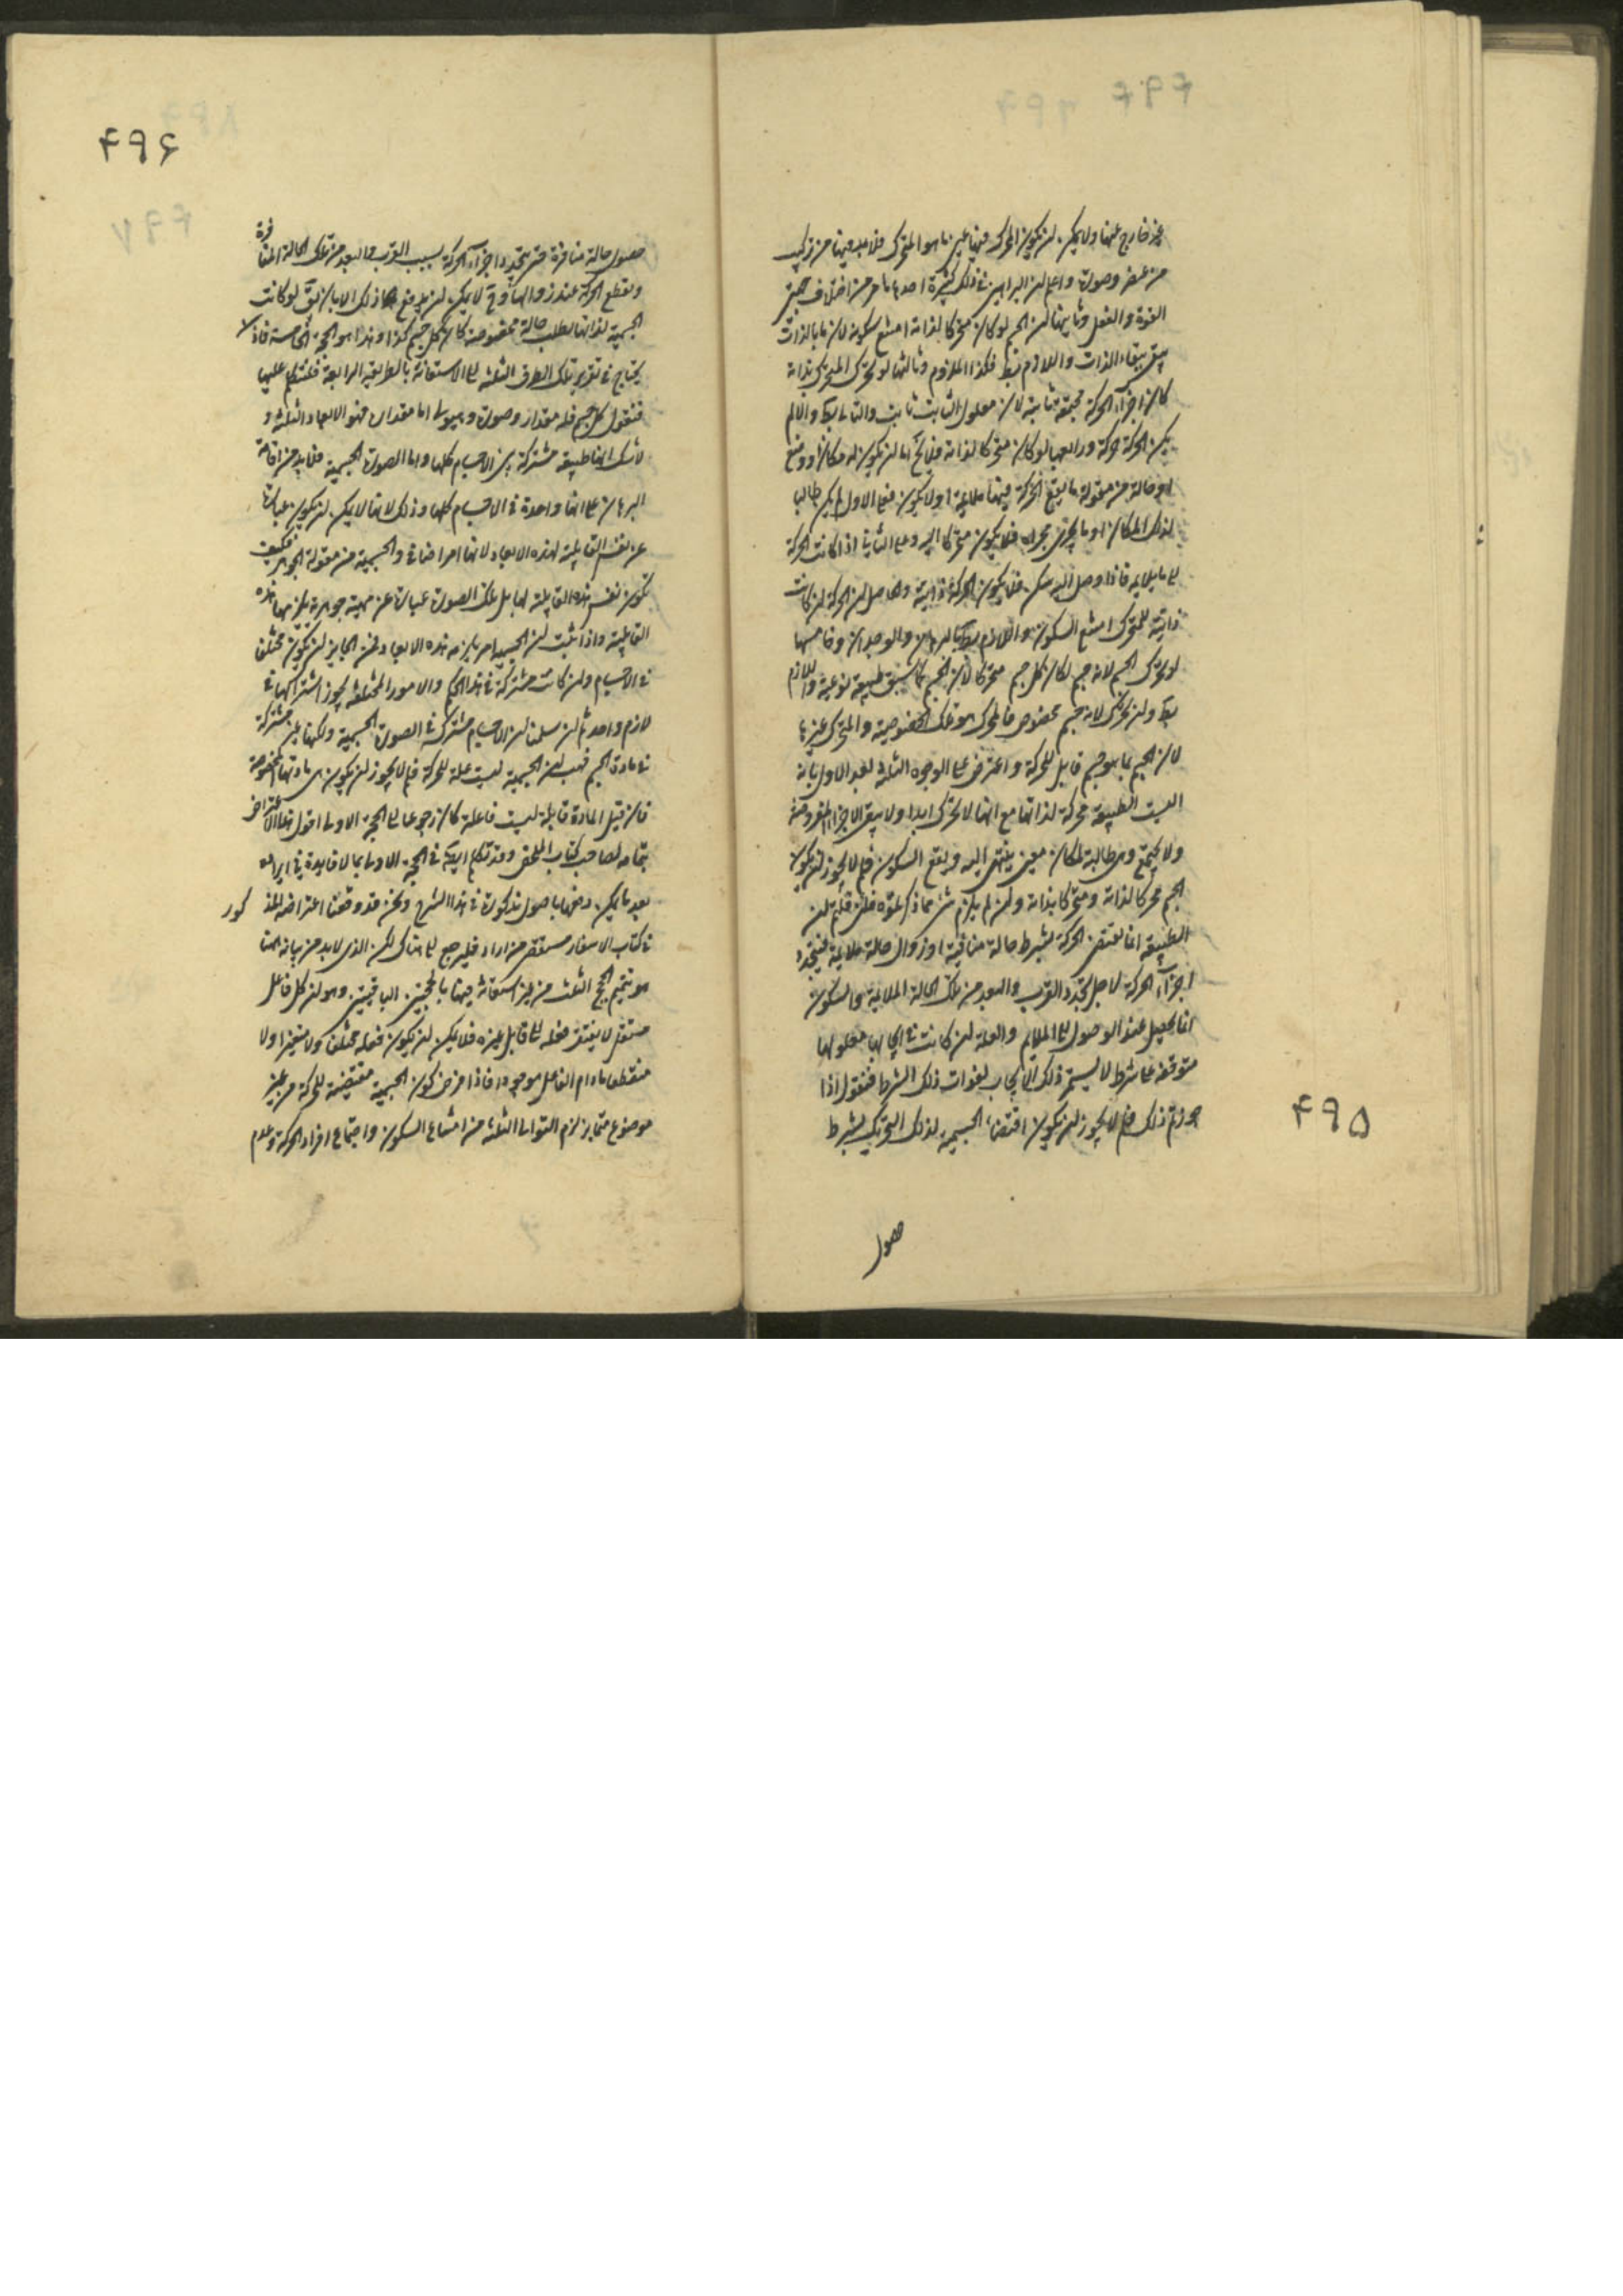 غير خارج عنها ولا يمكن ان يكون المحرك فيها عين ما هو المتحرك فلا بد فيها من تركيب
من عنصر وصورة واعلم ان البراهين في ذلك كثيرة احدها ما مر من اختلاف جهتي
القوة والفعل وثانيها ان الجسم لو كان متحركا لذاته امتنع سكونه لان ما بالذات
يبقى ببقاء الذات واللازم بط فكذا الملزوم وثالثها لو تحرك المتحرك بذاته
كان اجزاء الحركة مجتمعة ثابتة لان معلول الثابت ثابت والتالى بط والا لم
يكن الحركة حركة ورابعها لو كان متحركا لذاته فلا يخ اما ان يكون له مكان او وضع
او حالة من مقولة ما يقع الحركة فيها ملايمة او لا يكون فعلى الاول لم يكن طالبا
لذلك المكان او ما يجرى مجراه فلا يكون متحركا اليه وعلى الثانى اذا كانت الحركة
الى ما يلايمه فاذا وصل اليه سكن فلا يكون الحركة ذاتية والحاصل ان الحركة ان كانت
ذاتية للمتحرك امتنع السكون واللازم بط بالبرهان والوجدان وخامسها
لو تحرك الجسم لانه جسم لكان كل جسم متحركا لان الجسم كما سبق طبيعة نوعية واللازم
بط وان تحرك لانه جسم مخصوص فالمحرك هو تلك الخصوصية والمتحرك غيرها
لان الجسم بما هو جسم قابل للحركة واعترض على الوجوه الثلثة بعد الاول بانه
اليست الطبيعة محركة لذاتها مع انها لا تحرك ابدا ولا يبقى الاجزاء المفروضة
ولا يجتمع وهى طالبة لمكان معين ينتهى اليه ويقع السكون فلم لا يجوز ان يكون
الجسم محركا لذاته ومتحركا بذاته وان لم يلزم شئ مما ذكرتموه فلئن قلتم ان
الطبيعة انما تقتضى الحركة بشرط حالة منافية او زوال حالة ملايمة فيتجدد
اجزاء الحركة لاجل تجدد القرب والبعد من تلك الحالة الملايمة والسكون
انما يحصل عند الوصول الى الملايم والعلة ان كانت في ايجابها معلولها
متوقفة على شرط لا يستمر ذلك الايجاب لفوات ذلك الشرط فنقول اذا
جوزتم ذلك فلم لا يجوز ان يكون اقتضاء الجسمية لذلك التحريك بشرط
حصول
۴۹۵
۴۹۶
حصول حالة منافرة حتى يتجدد اجزاء الحركة بسبب القرب والبعد من تلك الحالة المنا
فرة
وتنقطع الحركة عند زوالها وح لا يمكن ان يدفع هذا ذلك الا بان يق لو كانت
الجسمية لذاتها تطلب حالة مخصوصة كان كل جسم كذا وهذا هو الحجة الخامسة فاذن
يحتاج في تقرير تلك الطرق الثلثة الى الاستعانة بالطريقة الرابعة فلنتكلم عليها
فنقول كل جسم فله مقدار وصورة وهيولى اما مقداره فهو الابعاد الثلثة و
لا شك انها طبيعة مشتركة بين الاجسام كلها واما الصورة الجسمية فلا بد من اقامة
البرهان على انها واحدة في الاجسام كلها وذلك لانها لا يمكن ان يكون عبارة
عن نفس القابلية لهذه الابعاد لانها امر اضافى والجسمية من مقولة الجوهر فكيف
تكون نفس هذه القابلية لها بل تلك الصورة عبارة عن مهية جوهرية يلزمها هذه
القابلية واذا ثبت ان الجسمية امر يلزمه هذه الابعاد فمن الجايز ان يكون مختلفا
في الاجسام وان كانت مشتركة في هذا الحكم والامور المختلفة يجوز اشتراكها في
لازم واحد ثم ان سلمنا ان الاجسام مشتركة في الصورة الجسمية ولكنها غير مشتركة
في مادة الجسم فهب ان الجسمية ليست علة للحركة فلم لا يجوز ان يكون هى مادتها المخصوصة
فان قيل المادة قابلة ليست فاعلة كان رجوعا الى الحجة الاولى اقول هذا الاعتراض
بتمامه لصاحب كتاب الملخص وقد تكلم ايضا في الحجة الاولى بما لا فايدة في ايراده
بعد ما يمكن دفعها باصول مذكورة في هذا الشرح ونحن قد دفعنا اعتراضه المذ
كور
في كتاب الاسفار مستقصى من اراد فليرجع الى هناك لكن الذى لا بد من بيانه هنا
هو تتميم الحجج الثلث من غير استعانة فيها بالحجتين الباقيتين وهو ان كل فاعل
مستقل لا يفتقر فعله الى قابل غيره فلا يمكن ان يكون فعله مختلفا ولا متغيرا ولا
منقطعا ما دام الفاعل موجودا فاذا فرض كون الجسمية مقتضية للحركة من غير
موضوع متمايز لزم التوالى الثلثة من امتناع السكون واجتماع افراد الحركة وعدم